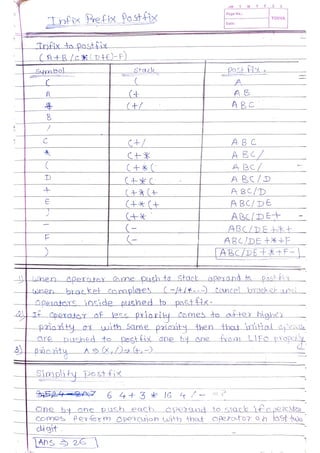 Infix Prefix Postfix
Page No.
Date
YOUVA
Infix to postfix
(A+B/C*(D+E)-F)
Symbol Stack Postfix.
( ( A
A (+ AB
+ (+/ ABC
B
/
C (+/ ABC
* (+* ABC/
( (+*( ABC/
D (+*( ABC/D
+ (+*(+ ABC/D
E (+*(+ ABC/DE
) (+* ABC/DE+
- (- ABC/DE+*+
F (- ABC/DE+*+F
) ABC/DE+*+F-
1) when operator come push to stack operand to postfix
when bracket completes (-/+/*...) cancel bracket and
operators inside pushed to postfix.
2) If operator of less priority comes to after higher
priority or with same priority then that initial
are pushed to postfix one by one from LIFO
3) priority ^ → (×, /) → (+, -)
Simplify Postfix
6 4 + 3 * 16 4 / - = ?
One by one push each operand to stack if operator
comes perform operation with that operator on last two
digit
Ans → 26